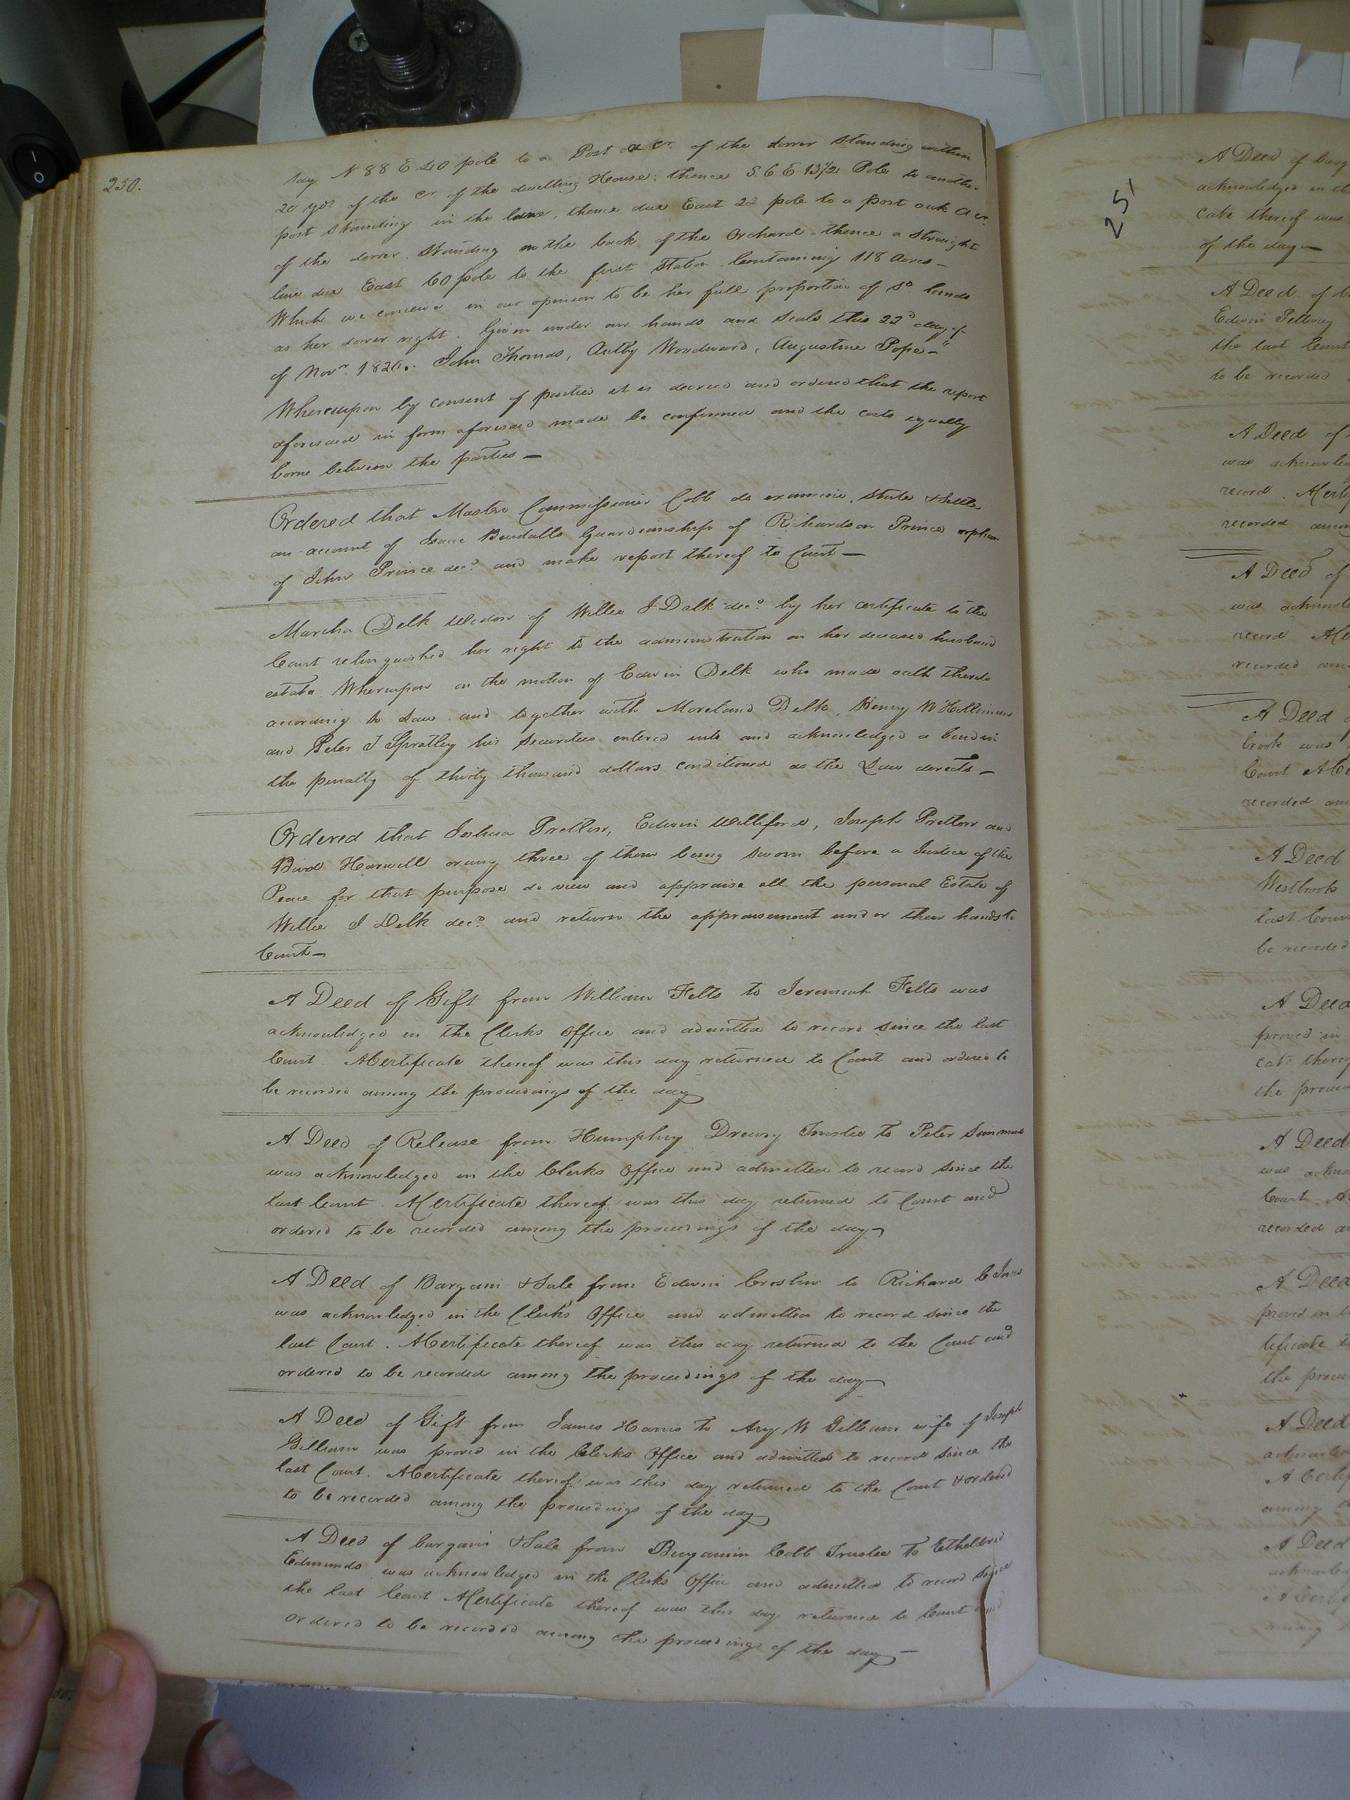 250.
say N 88 E 40 pole to a Post oak cr. of the dower standing within
20 yds of the cr of the dwelling House; thence S. 6 E 13½ Pole to another
post standing in the lane, thence due East 22 pole to a post oak a cr.
of the dower standing on the back of the Orchard thence a straight
line due East 60 pole to the first station Containing 118 acres—
Which we conceive in our opinion to be her full proportion of sd. lands
as her dower right. Given under our hands and seals this 22d day of
of Novr. 1826. John Thomas, Woodward, Augustine Pope—"
Whereupon by consent of parties it is decreed and ordered that the report
aforesaid in form aforesaid made be confirmed and the costs equally
borne between the parties—
Ordered that Master Commissioner Cobb do examine, state & settle
an account of Guardianship of Richardson Prince orphan
of John Prince decd. and make report thereof to Court—
Martha Delk Widow of Willie J Delk decd. by her certificate to the
Court relinquished her right to the administration on her deceased husband
estate Whereupon on the motion of Edwin Delk who made oath thereto
according to Law and together with Moreland Delk, Henry W
and Peter J Spratley his securities entered into and acknowledged a bond in
the penalty of thirty thousand dollars conditioned as the Law directs—
Ordered that Joshua Pretlow, Edwin Williford, Joseph Pretlow and
Burd Harwell or any three of them being sworn before a Justice of the
Peace for that purpose do view and appraise all the personal Estate of
Willie J Delk decd. and return the appraisement under their hands to
Court—
A Deed of Gift from William Felts to Jeremiah Felts was
acknowledged in the Clerks Office and admitted to record since the last
Court. A Certificate thereof was this day returned to Court and ordered to
be recorded among the proceedings of the day
A Deed of Release from Humphry Drewry Trustee to Peter Sammons
was acknowledged in the Clerks Office and admitted to record since the
last Court. A Certificate thereof was this day returned to Court and
ordered to be recorded among the proceedings of the day
A Deed of Bargain & Sale from Edwin to Richard C
was acknowledged in the Clerks Office and admitted to record since the
last Court. A Certificate thereof was this day returned to the Court and
ordered to be recorded among the proceedings of the day—
A Deed of Gift from James Harris to W Gilliam wife of Joseph
Gilliam was proved in the Clerks Office and admitted to record since the
last Court. A Certificate thereof was this day returned to the Court & ordered
to be recorded among the proceedings of the day
A Deed of bargain & Sale from Benjamin Cobb Trustee to Etheldred
Edmunds was acknowledged in the Clerks Office and admitted to record since
the last Court A Certificate thereof was this day returned to Court and
ordered to be recorded among the proceedings of the day—
251
A Deed of
acknowledged in
thereof was
of the day—
A Deed of
Edwin
the last Court
to be recorded
A Deed of
was
record.
recorded among
A Deed of
was
record
recorded
A Deed
was
Court
recorded
A Deed
Westbrook
last
be recorded
A Deed
proved in
the
A Deed
was
Court
recorded
A Deed
proved in
the
A Deed
A
among
A Deed
A